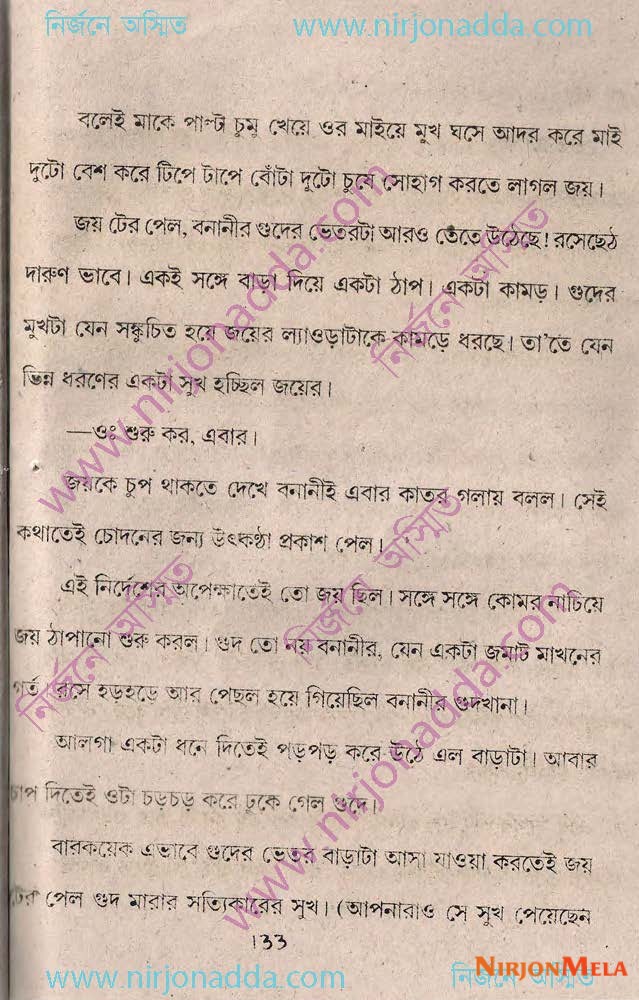 নির্জনে অস্মিত www.nirjonadda.com
বলেই মাকে পাল্ট চুমু খেয়ে ওর মাইয়ে মুখ ঘসে আদর করে মাই
দুটো বেশ করে টিপে টাপে বোঁটা দুটো চুষে সোহাগ করতে লাগল জয়।
জয় টের পেল, বনানীর গুদের ভেতরটা আরও তেতে উঠেছে! রসেছেঠ
দারুণ ভাবে। একই সঙ্গে বাড়া দিয়ে একটা ঠাপ। একটা কামড়। গুদের
মুখটা যেন সঙ্কুচিত হয়ে জয়ের ল্যাওড়াটাকে কামড়ে ধরছে। তা'তে যেন
ভিন্ন ধরণের একটা সুখ হচ্ছিল জয়ের।
—ওঃ শুরু কর, এবার।
জয়কে চুপ থাকতে দেখে বনানীই এবার কাতর গলায় বলল। সেই
কথাতেই চোদনের জন্য উৎকণ্ঠা প্রকাশ পেল।
এই নির্দেশের অপেক্ষাতেই তো জয় ছিল। সঙ্গে সঙ্গে কোমর নাচিয়ে
জয় ঠাপানো শুরু করল। গুদ তো নয় বনানীর, যেন একটা জমাট মাখনের
গর্ত রসে হড়হড়ে আর পেছল হয়ে গিয়েছিল বনানীর গুদখানা।
আলগা একটা ধনে দিতেই পড়পড় করে উঠে এল বাড়াটা। আবার
চাপ দিতেই ওটা চড়চড় করে ঢুকে গেল গুদে।
বারকয়েক এভাবে গুদের ভেতর বাড়াটা আসা যাওয়া করতেই জয়
টের পেল গুদ মারার সত্যিকারের সুখ। (আপনারাও সে সুখ পেয়েছেন
133
www.nirjonadda.com নির্জনে অস্মিত
NIRJONMELA
www.nirjonadda.com
নির্জনে অস্মিত
নির্জনে অস্মিত
নির্জনে অস্মিত
www.nirjonadda.com